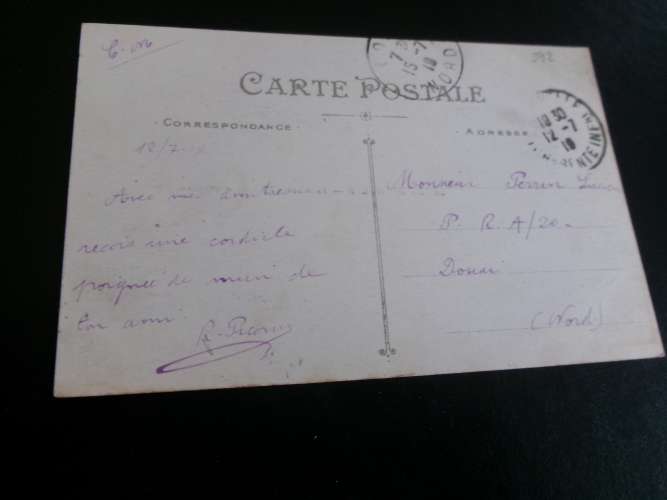 CARTE POSTALE
CORRESPONDANCE
ADRESSE
12/7
Avec mes
Monsieur Perrin Lucien
reçois une cordiale
P. R. A/20.
poignée de main de
Douai
ton ami
(Nord)
7 3
15-7
10
NORD
10 30
12-7
10
392